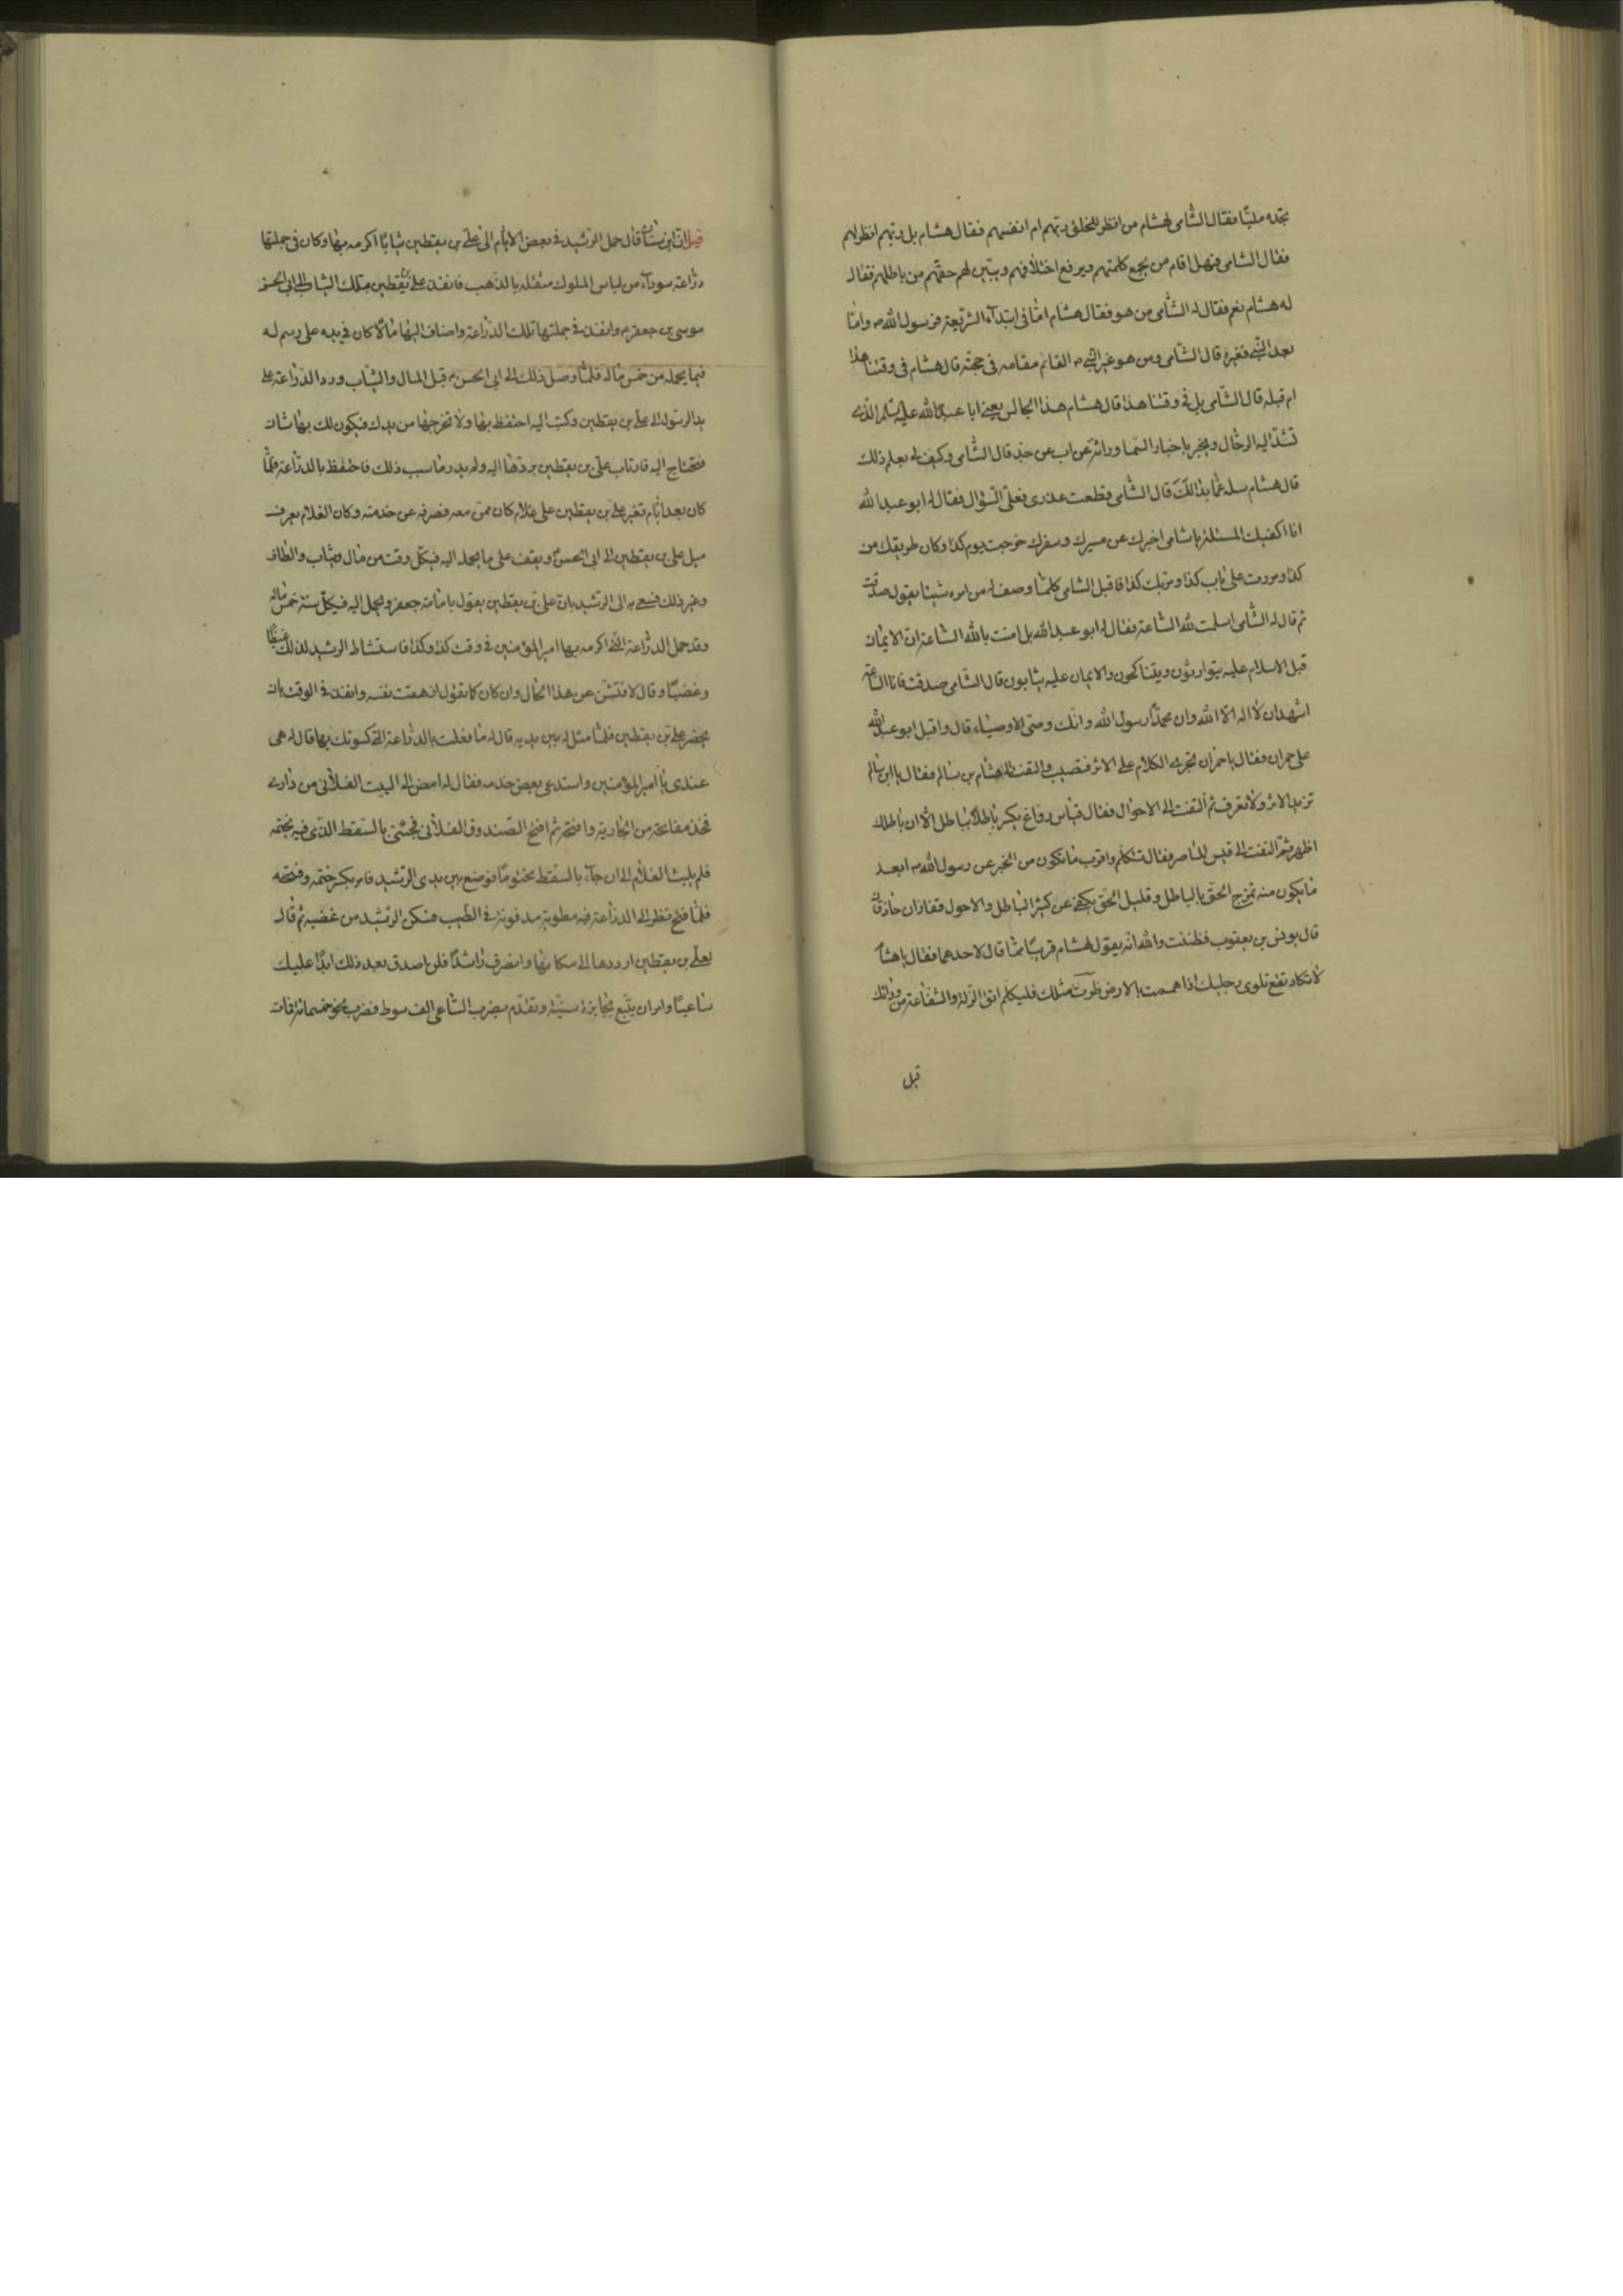 تجده مليّا فقال الشّامى لهشام من انظر للخلق ربّهم ام انفسهم فقال هشام بل ربّهم انظر لهم
فقال الشامى فهل اقام من يجمع كلمتهم ويرفع اختلافهم ويبيّن لهم حقّهم من باطلهم فقال
له هشام نعم فقال له الشّامى من هو فقال هشام امّا فى ابتدآء الشريعة فرسول الله ص وامّا
بعد النبى فغيره قال الشّامى ومن هو غير النبى ص القائم مقامه فى حجّته قال هشام فى وقتنا هذا
ام قبله قال الشّامى بل فى وقتنا هذا قال هشام هذا الجالس يعنى ابا عبد الله عليه السّلم الذّى
تشدّ اليه الرحال ويخبر باخبار السّما وراثة عن اب عن جدّ قال الشّامى وكيف لى بعلم ذلك
قال هشام سله عمّا بدا لك قال الشّامى قطعت عذرى فعلىّ السّؤال فقال له ابو عبد الله
انا اكفيك المسئلة يا شامى اخبرك عن مسيرك وسفرك خرجت يوم كذا وكان طريقك من
كذا ومررت على باب كذا ومرّ بك كذا فاقبل الشامى كلمّا وصف له من امره شيئا يقول صدقت
ثم قال له الشّامى اسلمت لله السّاعة فقال له ابو عبد الله بل امنت بالله السّاعة انّ الايمان
قبل الاسلام عليه يتوارثون ويتناكحون والايمان عليه يثابون قال الشامى صدقت فانا السّاعة
اشهد ان لا اله الّا الله وان محمّدًا رسول الله وانّك وصىّ الاوصياء قال واقبل ابو عبد الله
على حمران فقال يا حمران تجرى الكلام على الاثر فتصيب والتفت الى هشام بن سالم فقال يا ابن سالم
تريد الاثر ولا تعرف ثم التفت الى الاحوال فقال قياس روّاغ بكسر باطلًا بباطل الّا ان باطلك
اظهر ثمّ التفت الى قيس الماصر فقال تتكلم واقرب ما تكون من الخبر عن رسول الله ص ابعد
ما يكون منه تمزج الحقّ بالباطل وقليل الحقّ يكفى عن كثير الباطل والاحول قفازان حاذقان
قال يونس بن يعقوب فظننت والله انّه يقول لهشام قريبًا ممّا قال لاحدهما فقال يا هشام
لا تكاد تقع تلوى رجليك اذا هممت بالارض طرت مثلك فليكلم اتق الزّلة والشّفاعة من ورائك
قيل
قيل انّ ابن سنان قال حمل الرّشيد فى بعض الايّام الى على بن يقطين ثيابًا اكرمه بها وكان فى جملتها
درّاعة سودآء من لباس الملوك مثقله بالذّهب فانفذ على بن يقطين بتلك الثياب الى ابى الحسن
موسى بن جعفر م وانفذ فى جملتها تلك الدّرّاعة واضاف اليها مالًا كان فى يده على رسم له
فيما يحمله من خمس ماله فلمّا وصل ذلك الى ابى الحسن م قبل المال والثّياب وردّ الدّرّاعة على
يد الرسول الى على بن يقطين وكتب اليه احتفظ بها ولا تخرجها من يدك فيكون لك بها شان
فتحتاج اليه فارتاب علىّ بن يقطين بردّها اليه ولم يدر ما سبب ذلك فاحتفظ بالدّراعة فلمّا
كان بعد ايّام تغيّر على بن يقطين على غلام كان ممّن معه فصرفه عن خدمته وكان الغلام يعرف
ميل على بن يقطين الى ابى الحسن ويقف على ما يحمله اليه فى كلّ وقت من مال وثياب والطاف
وغير ذلك فسعى به الى الرّشيد بان على بن يقطين يقول بامامة جعفر ويحمل اليه فى كلّ سنة خمس ماله
وقد حمل الدّرّاعة التّى اكرمه بها امير المؤمنين فى وقت كذا وكذا فاستشاط الرشيد لذلك غيظًا
وغضبًا وقال لافتشنّ عن هذا الحال وان كان كما تقول ازهقت نفسه وانفذ فى الوقت بان
يحضر على بن يقطين فلمّا مثل له بين يديه قال له ما فعلت بالدّراعة التى كسوتك بها قال له هى
عندى يا امير المؤمنين واستدعى بعض خدمه فقال له امض الى البيت الفلانى من دارى
فخذ مفاتحه من الجارية وافتحه ثم افتح الصّندوق الفلانى فجئنى بالسّفط الذّى فيه بختمه
فلم يلبث الغلام الى ان جاء بالسّفط مختومًا فوضع بين يدى الرّشيد فامر بكسر ختمه وفتحه
فلمّا فتح نظر الى الدرّاعة فيه مطوية مدفونة فى الطّيب فسكن الرّشيد من غضبه ثم قال
لعلى بن يقطين ارددها الى مكانها وانصرف راشدًا فلن اصدق بعد ذلك ابدًا عليك
ساعيًا وامر ان يتّبع بجايزة سنيّة وتقدّم بضرب السّاعى الف سوط فضرب نحو خمسمائة فمات